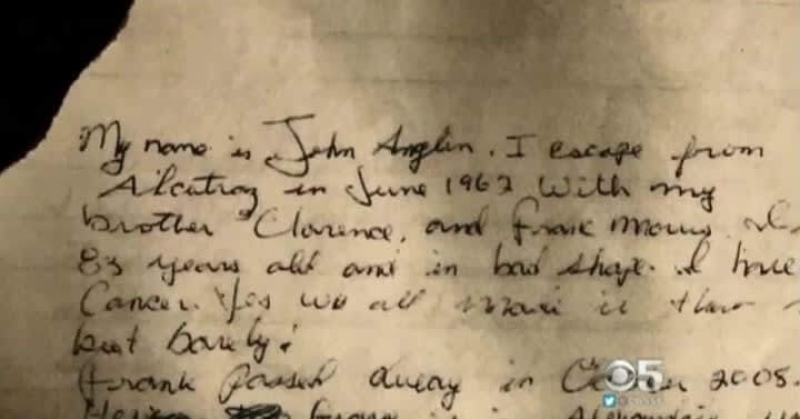 My name is John Anglin. I escape from
Alcatraz in June 1962 With my
brother Clarence, and Frank Morris
83 years old and in bad shape. I have
Cancer. Yes we all made it that
but barely!
Frank passed away in 2005.
CBS 5